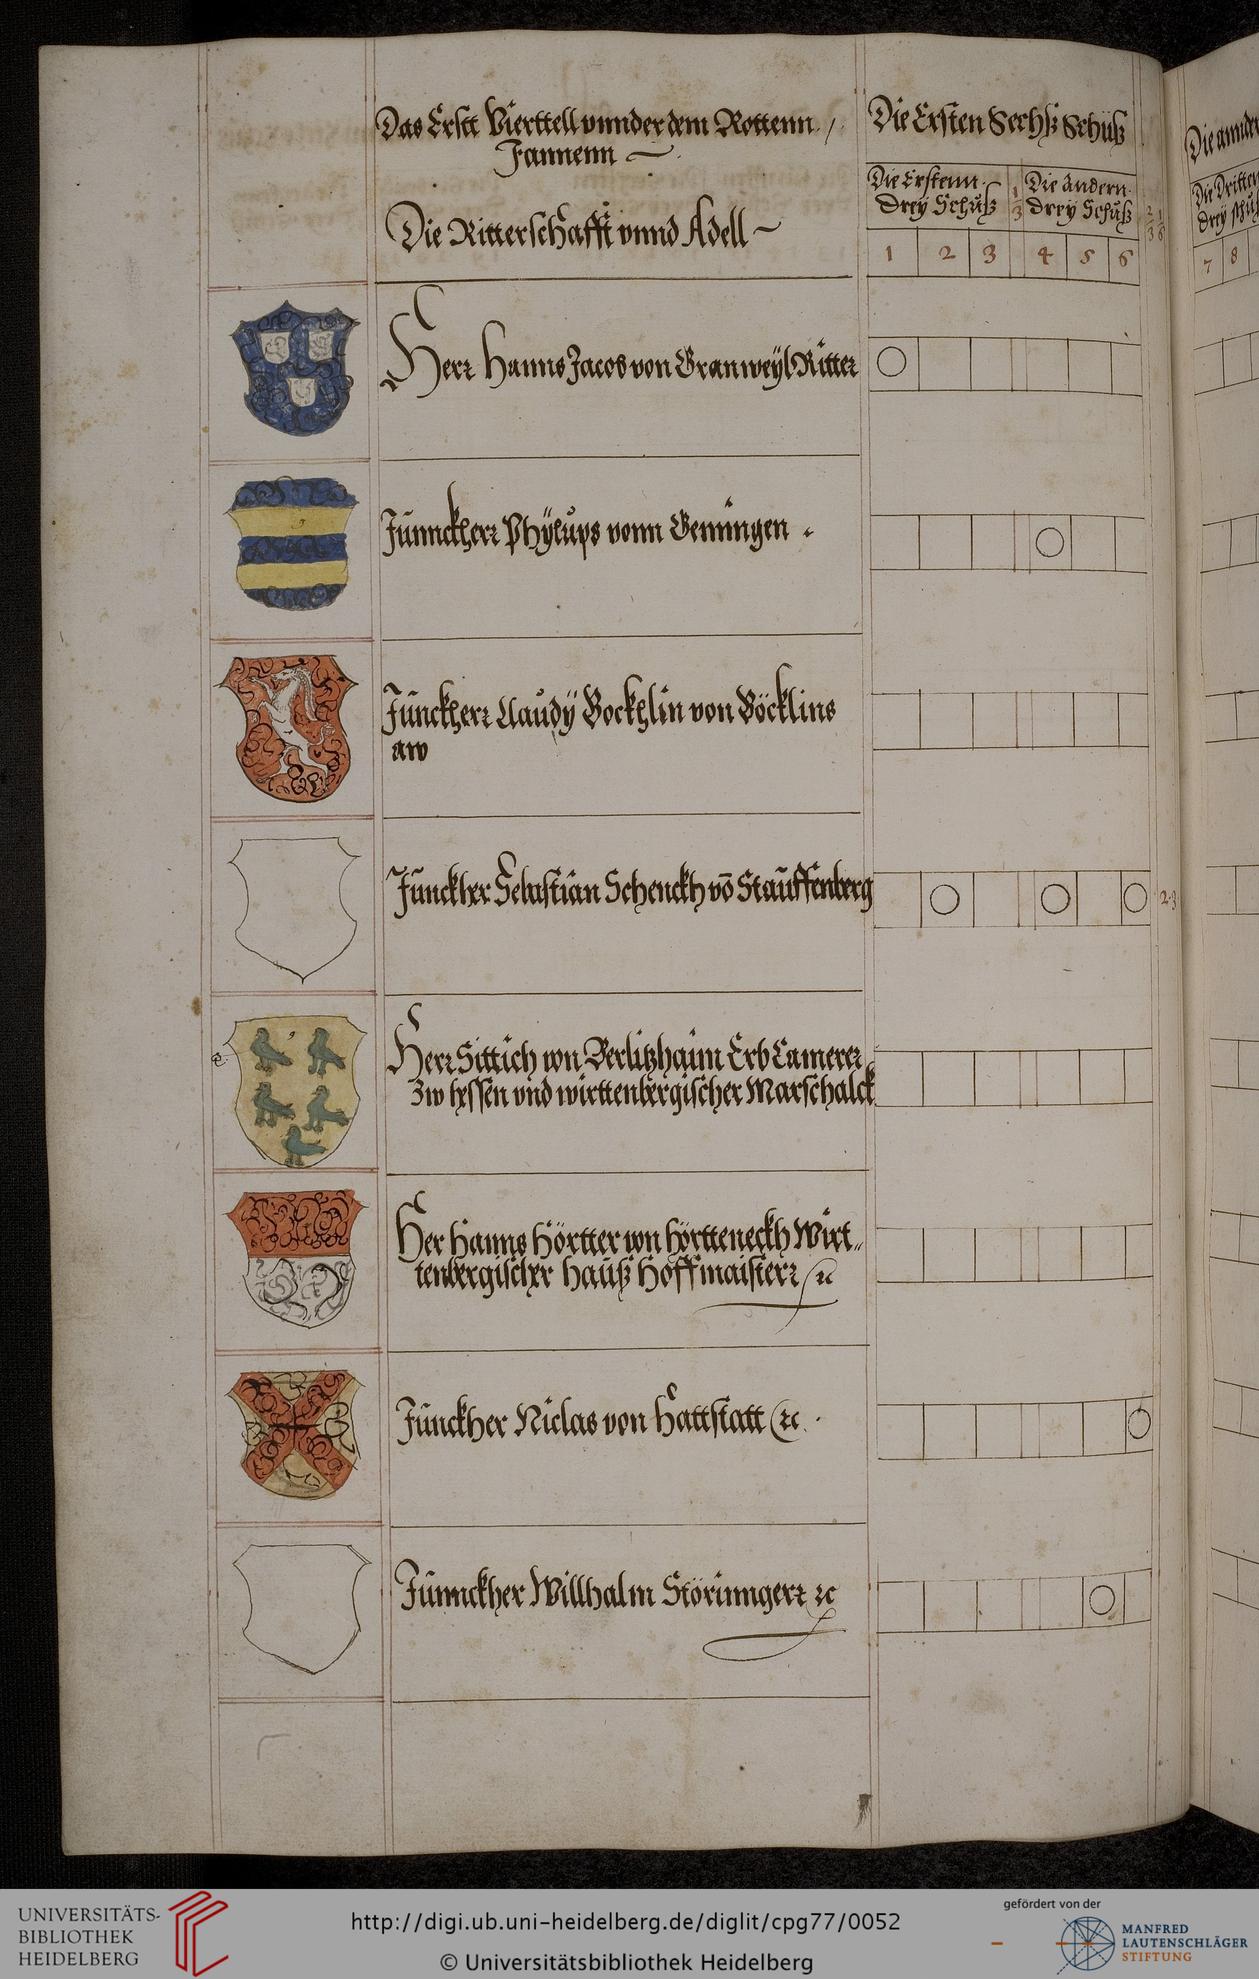 Das Erstt Vierttell vnnder dem Rottenn
Fannenn
Die Ritterschafft vnnd Adell
Die Ersten Sechß Schuß
Die Erstenn
Drey Schüß
Die Andern
drey Schüß
1 2 3 4 5 6
Herr Hanns Jacob von Granweyl Ritter
Junnckherr Phylups vonn Gemingen
Junckherr Claudy Bockhlin von Böcklins
aw
Junckher Sebastian Schenckh vō Stauffenberg
2 3
Herr Sittich von Berlitzhaim Erb Camerer
Zw hessen vnd wirttenbergischer Marschalck
Her Hanns Hörtter von Hörtteneckh Wirt„
tenbergischer Hauß Hoffmaisterr ꝛc
Junckher Niclas von Hattstatt ꝛc
Junnckher Willhalm Störinngerr ꝛc
Die annder
Die Dritten
drey schüß
7 8
UNIVERSITÄTS-
BIBLIOTHEK
HEIDELBERG
http://digi.ub.uni-heidelberg.de/diglit/cpg77/0052
© Universitätsbibliothek Heidelberg
gefördert von der
MANFRED
LAUTENSCHLÄGER
STIFTUNG